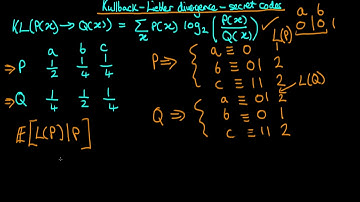 Kullback-Liebler divergence - secret codes
KL(P(x) → Q(x)) = Σ P(x) log₂ (P(x)/Q(x)) ✓
x
L(P)
a b
0 0 1
a b c
⇒ P 1/2 1/4 1/4
⇒ Q 1/4 1/2 1/4
P ⇒ { a ≡ 0 1
b ≡ 01 2
c ≡ 11 2
L(Q)
Q ⇒ { a ≡ 01 2
b ≡ 0 1
c ≡ 11 2
E[L(P)|P]